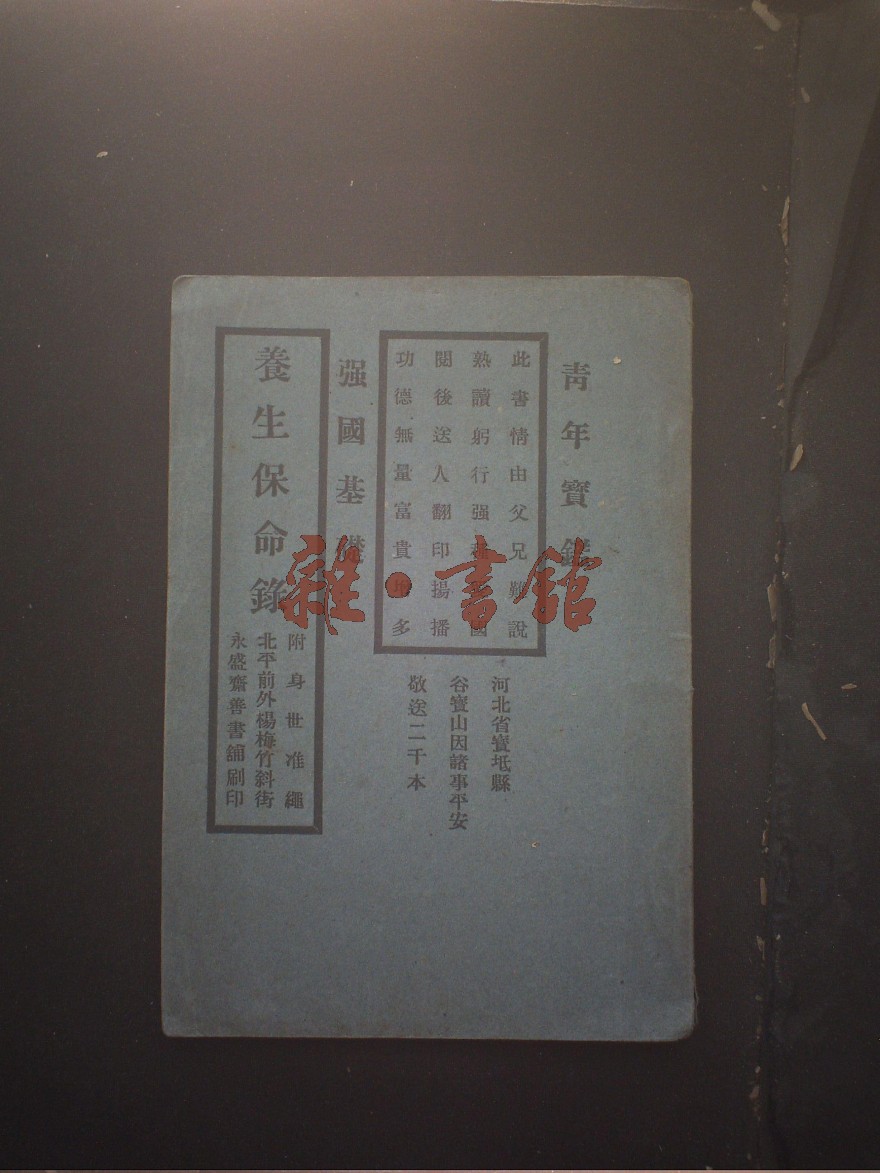 青年寶鑑
此書情由父兄難說
熟讀躬行强種强國
閱後送人翻印揚播
功德無量富貴增多
河北省寶坻縣
谷寶山因諸事平安
敬送二千本
强國基礎
養生保命錄
附身世准繩
北平前外楊梅竹斜街
永盛齋善書舖刷印
雜·書館